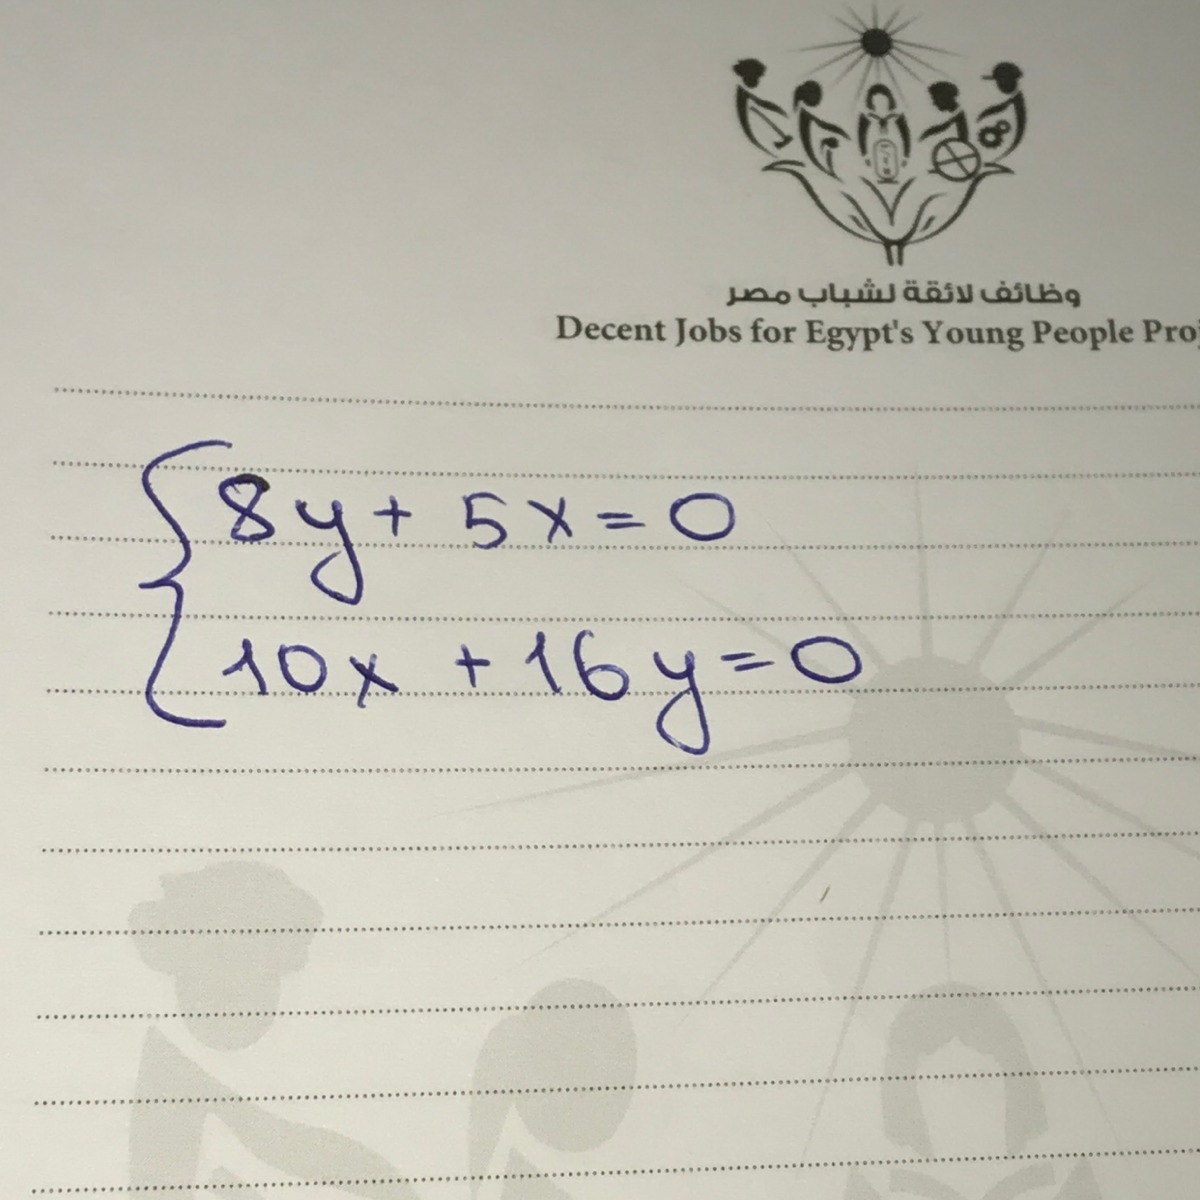 وظائف لائقة لشباب مصر
Decent Jobs for Egypt's Young People Proj
8y + 5x = 0
10x + 16y = 0